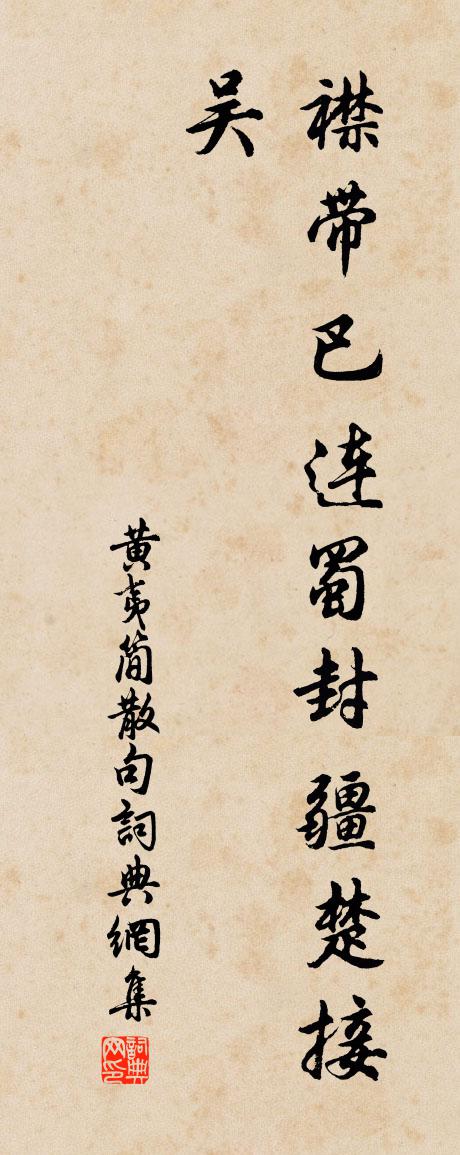 襟带巴连蜀封疆楚接
吴
黄夷简散句詞典網集
詞典
网印